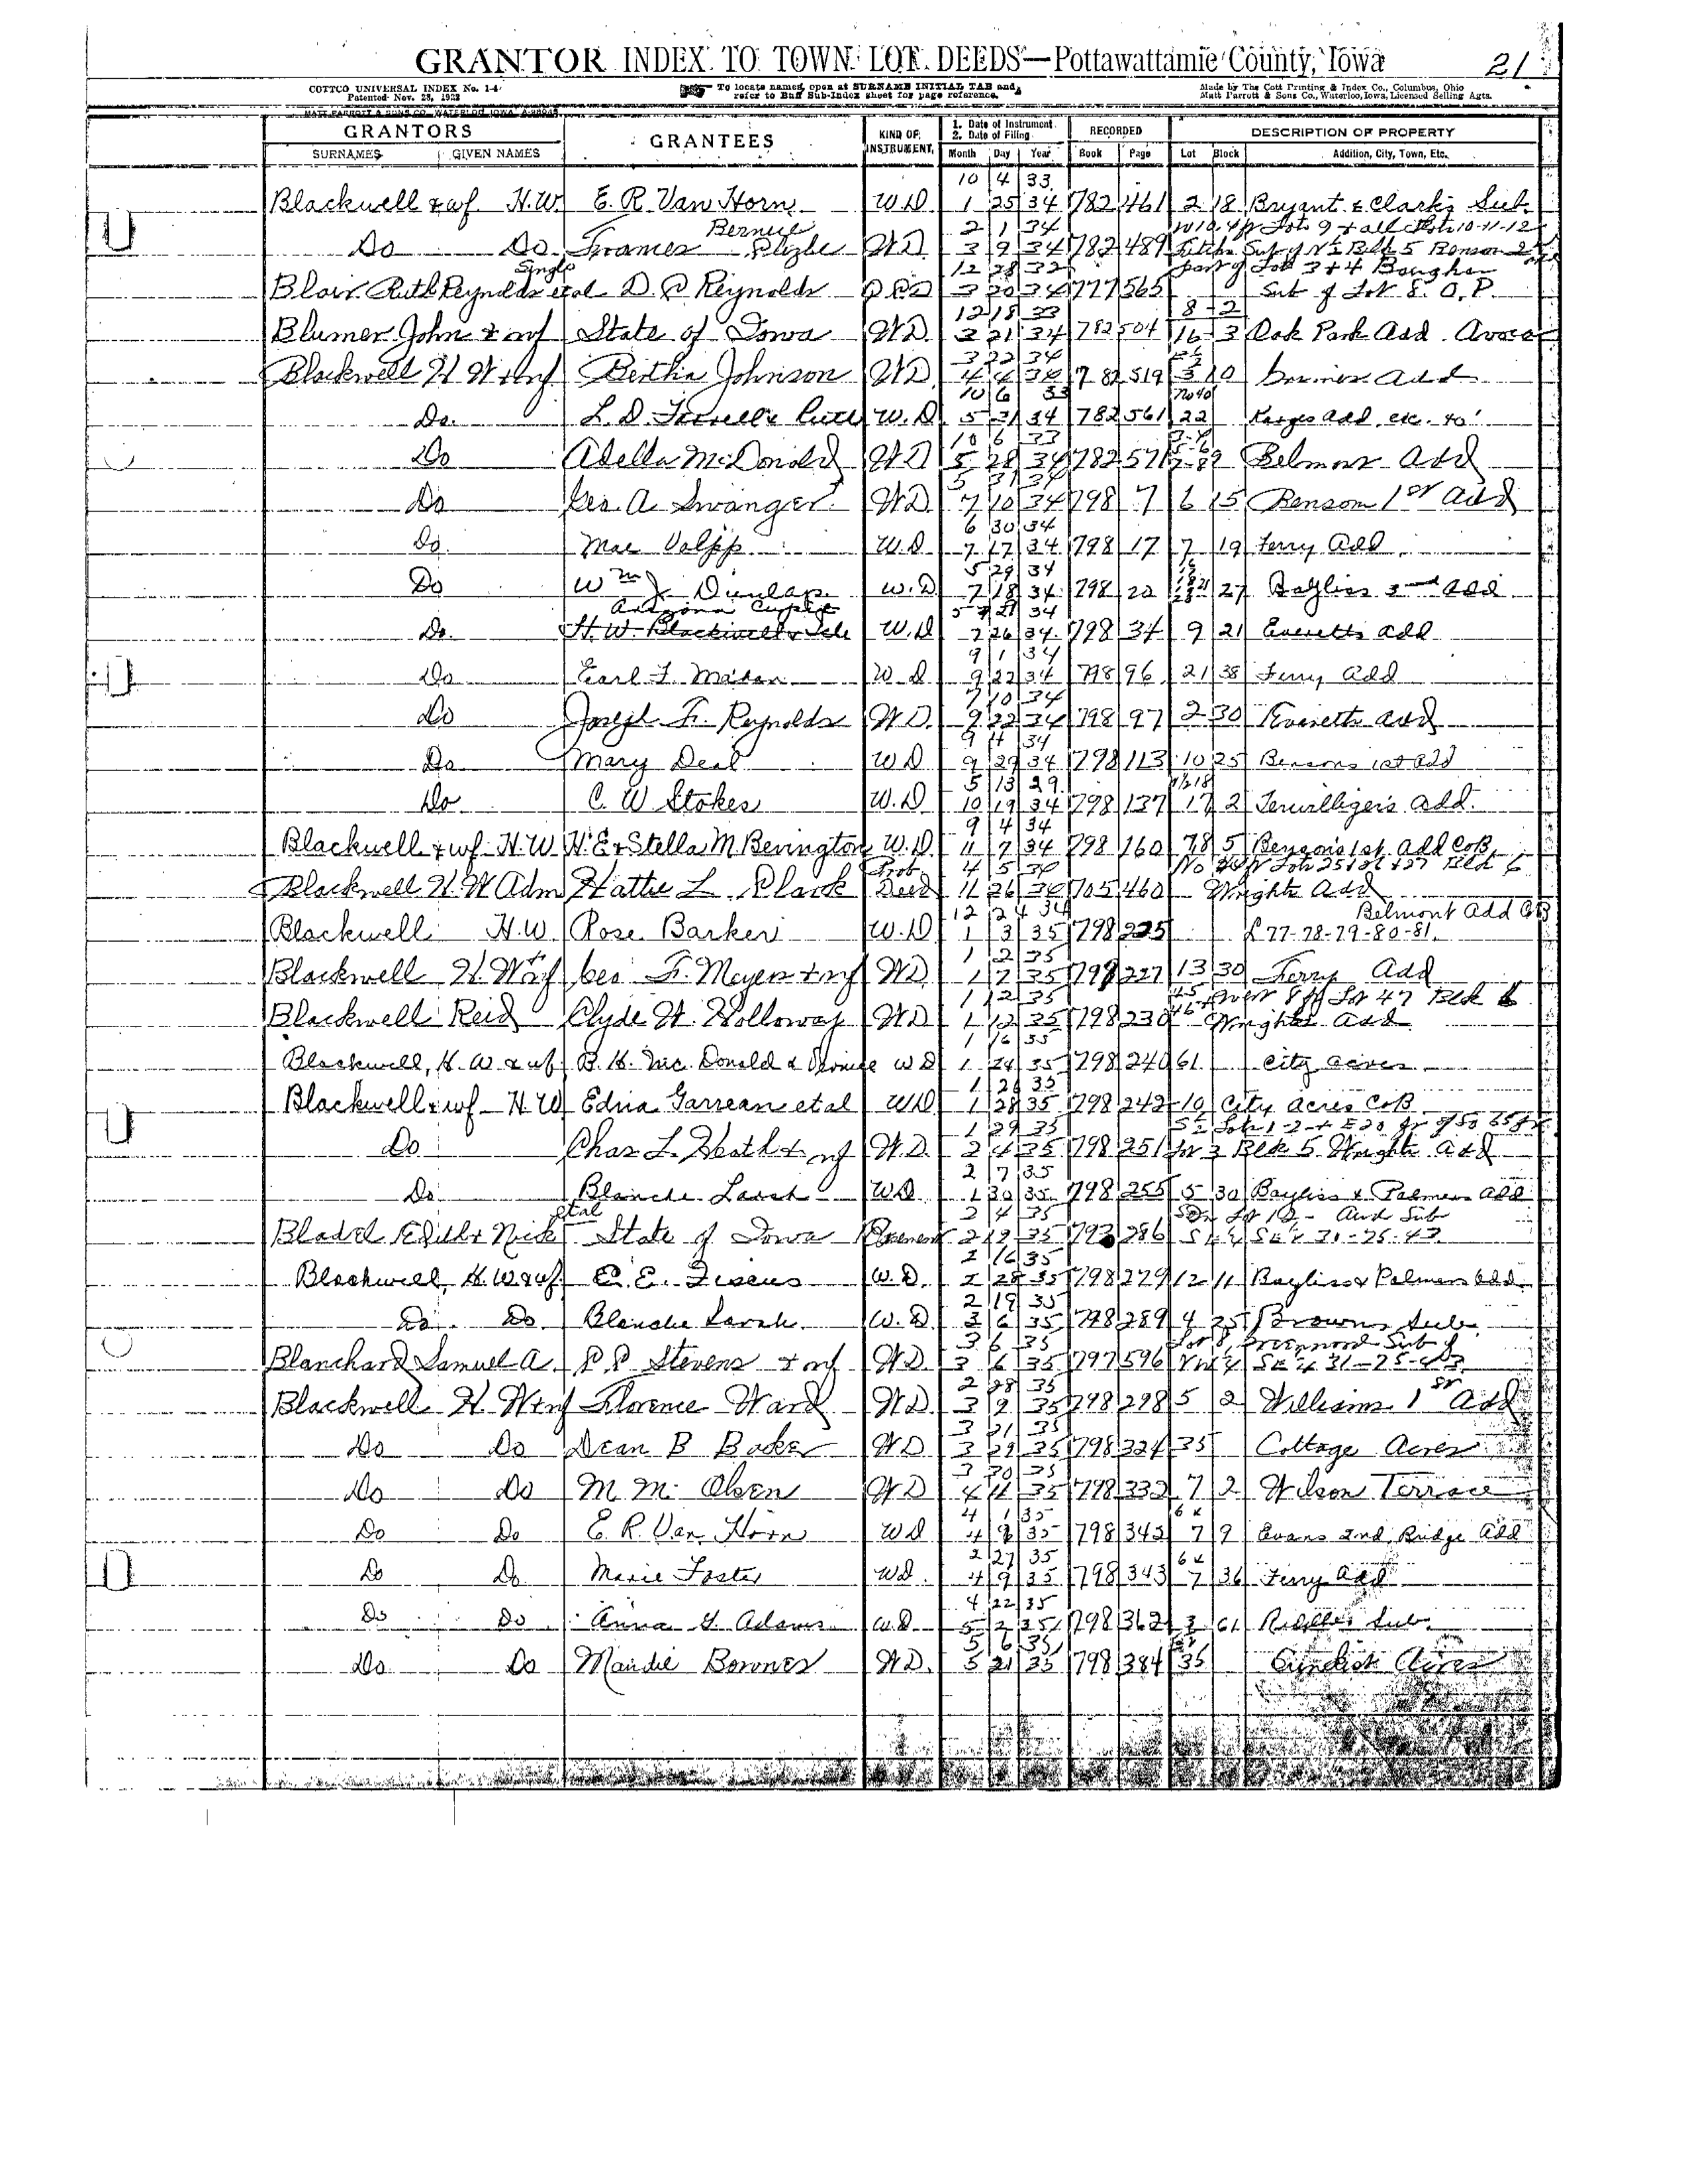 GRANTOR INDEX TO TOWN LOT DEEDS—Pottawattamie County, Iowa 21
COTTCO UNIVERSAL INDEX No. 1-4
Patented Nov. 28, 1922
To locate names, open at SURNAME INITIAL TAB and
refer to Buff Sub-Index sheet for page reference.
Made by The Cott Printing & Index Co., Columbus, Ohio
Matt Parrott & Sons Co., Waterloo, Iowa, Licensed Selling Agts.
GRANTORS GRANTEES KIND OF INSTRUMENT 1. Date of Instrument 2. Date of Filing RECORDED DESCRIPTION OF PROPERTY
SURNAMES GIVEN NAMES Month Day Year Book Page Lot Block Addition, City, Town, Etc.
10 4 33
Blackwell & wf. H.W. E. R. Van Horn W.D 1 25 34 782 461 2 18 Bryant & Clarks Sub.
Bernice 2 1 34
Do Do Frances WD 3 9 34 782 489
Single 12 28 32 part of Lot 3 + 4 Baughn
Blair Ruth Reynolds et al D. P Reynolds Q C D 3 20 34 777 565 Sub of Lot 8. O.P.
12 18 33 8-2
Blumer John & wf State of Iowa WD. 3 21 34 782 504 16-3 Oak Park Add. Avoca
3 22 34
Blackwell H W & wf Bertha Johnson WD 4 4 34 782 519 10 Add
10 6 33
Do. L. D. W.D. 5 21 34 782 561 22 Karges Add. etc. 40'
10 6 33
Do Adella McDonald WD 5 28 34 782 571 Belmont Add
5 31 34
Do Geo. A. Swanger WD. 7 10 34 798 7 6 15 Benson 1st Add
6 30 34
Do Mae W.D. 7 17 34 798 17 7 19 Ferry Add
5 29 34
Do Wm J Dunlap W.D 7 18 34 798 22 27 Bayliss 3rd Add.
Do. H. W. Blackwell W.D 7 26 34 798 34 9 21 Everetts Add
9 1 34
Do Earl F. W.D 9 22 34 798 96 21 38 Ferry Add
7 10 34
Do Joseph F. Reynolds WD. 9 22 34 798 97 2 30 Everetts Add
9 4 34
Do Mary Deal WD 9 29 34 798 113 10 25 Bensons 1st Add
5 13 29
Do C. W Stokes W.D 10 19 34 798 137 17 2 Terwilliger's Add.
9 4 34
Blackwell & wf. H.W H.E & Stella M Bevington W.D. 11 7 34 798 160 7,8 5 Benson's 1st. Add CoB
Prob 4 5 34
Blackwell H. W Adm Hattie L. Plank Deed 11 26 34 705 460 Wrights Add
12 24 34 Belmont Add CB
Blackwell H.W Rose Barker W.D 1 3 35 798 225 L 77-78-79-80-81.
1 2 35
Blackwell H. W & wf Geo F. Meyer & wf WD 1 7 35 798 227 13 30 Ferry Add
1 12 35
Blackwell Reid Clyde H. Holloway WD 1 12 35 798 230 Wrights Add
1 16 35
Blackwell, H. W & wf B. H. Mc Donald & WD 1 24 35 798 240 61 City acres
1 26 35
Blackwell & wf H W Edna Garrean et al WD 1 28 35 798 242 10 City Acres CoB
1 29 35
Do Chas L. Heath & wf W.D 2 4 35 798 251 3 Blk 5 Wrights Add
2 7 35
Do Blanche WD 1 30 35 798 255 5 30 Bayliss & Palmers Add
et al 2 4 35 Aud Sub
Bladel Edith & Nick State of Iowa 2 12 35 793 286 SE¼ SE¼ 31-75-43
2 16 35
Blackwell, H. W & wf E. E. W.D. 2 28 35 798 279 12 11 Bayliss & Palmers Add.
2 19 35
Do. Do. Blanche W.D 3 6 35 798 289 4 25 Browns Sub.
3 6 35 Lot 8, Greenwood Sub of
Blanchard Samuel A. P. P Stevens & wf WD 3 6 35 797 596 SE¼ 31-75-43
2 28 35
Blackwell H. W & wf Florence Ward WD 3 9 35 798 298 5 2 Williams 1st Add
3 21 35
Do Do Dean B Baker WD 3 29 35 798 324 35 Cottage Acres
3 30 35
Do Do M. M. Olsen WD 4 11 35 798 332 7 2 Wilson Terrace
4 1 35 6 &
Do Do E. R. Van Horn WD 4 9 35 798 342 7 9 Evans 2nd. Bridge Add
2 27 35 6 &
Do Do Marie Foster WD. 4 9 35 798 343 7 36 Ferry Add
4 22 35
Do Do Anna G. Adams W.D 5 2 35 798 362 3 61 Riddles Sub.
5 6 35
Do Do Maudie WD. 5 21 35 798 384 35 Acres